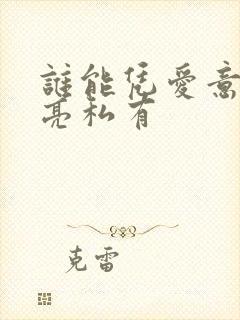 誰能凭愛意
亮私有
克雷